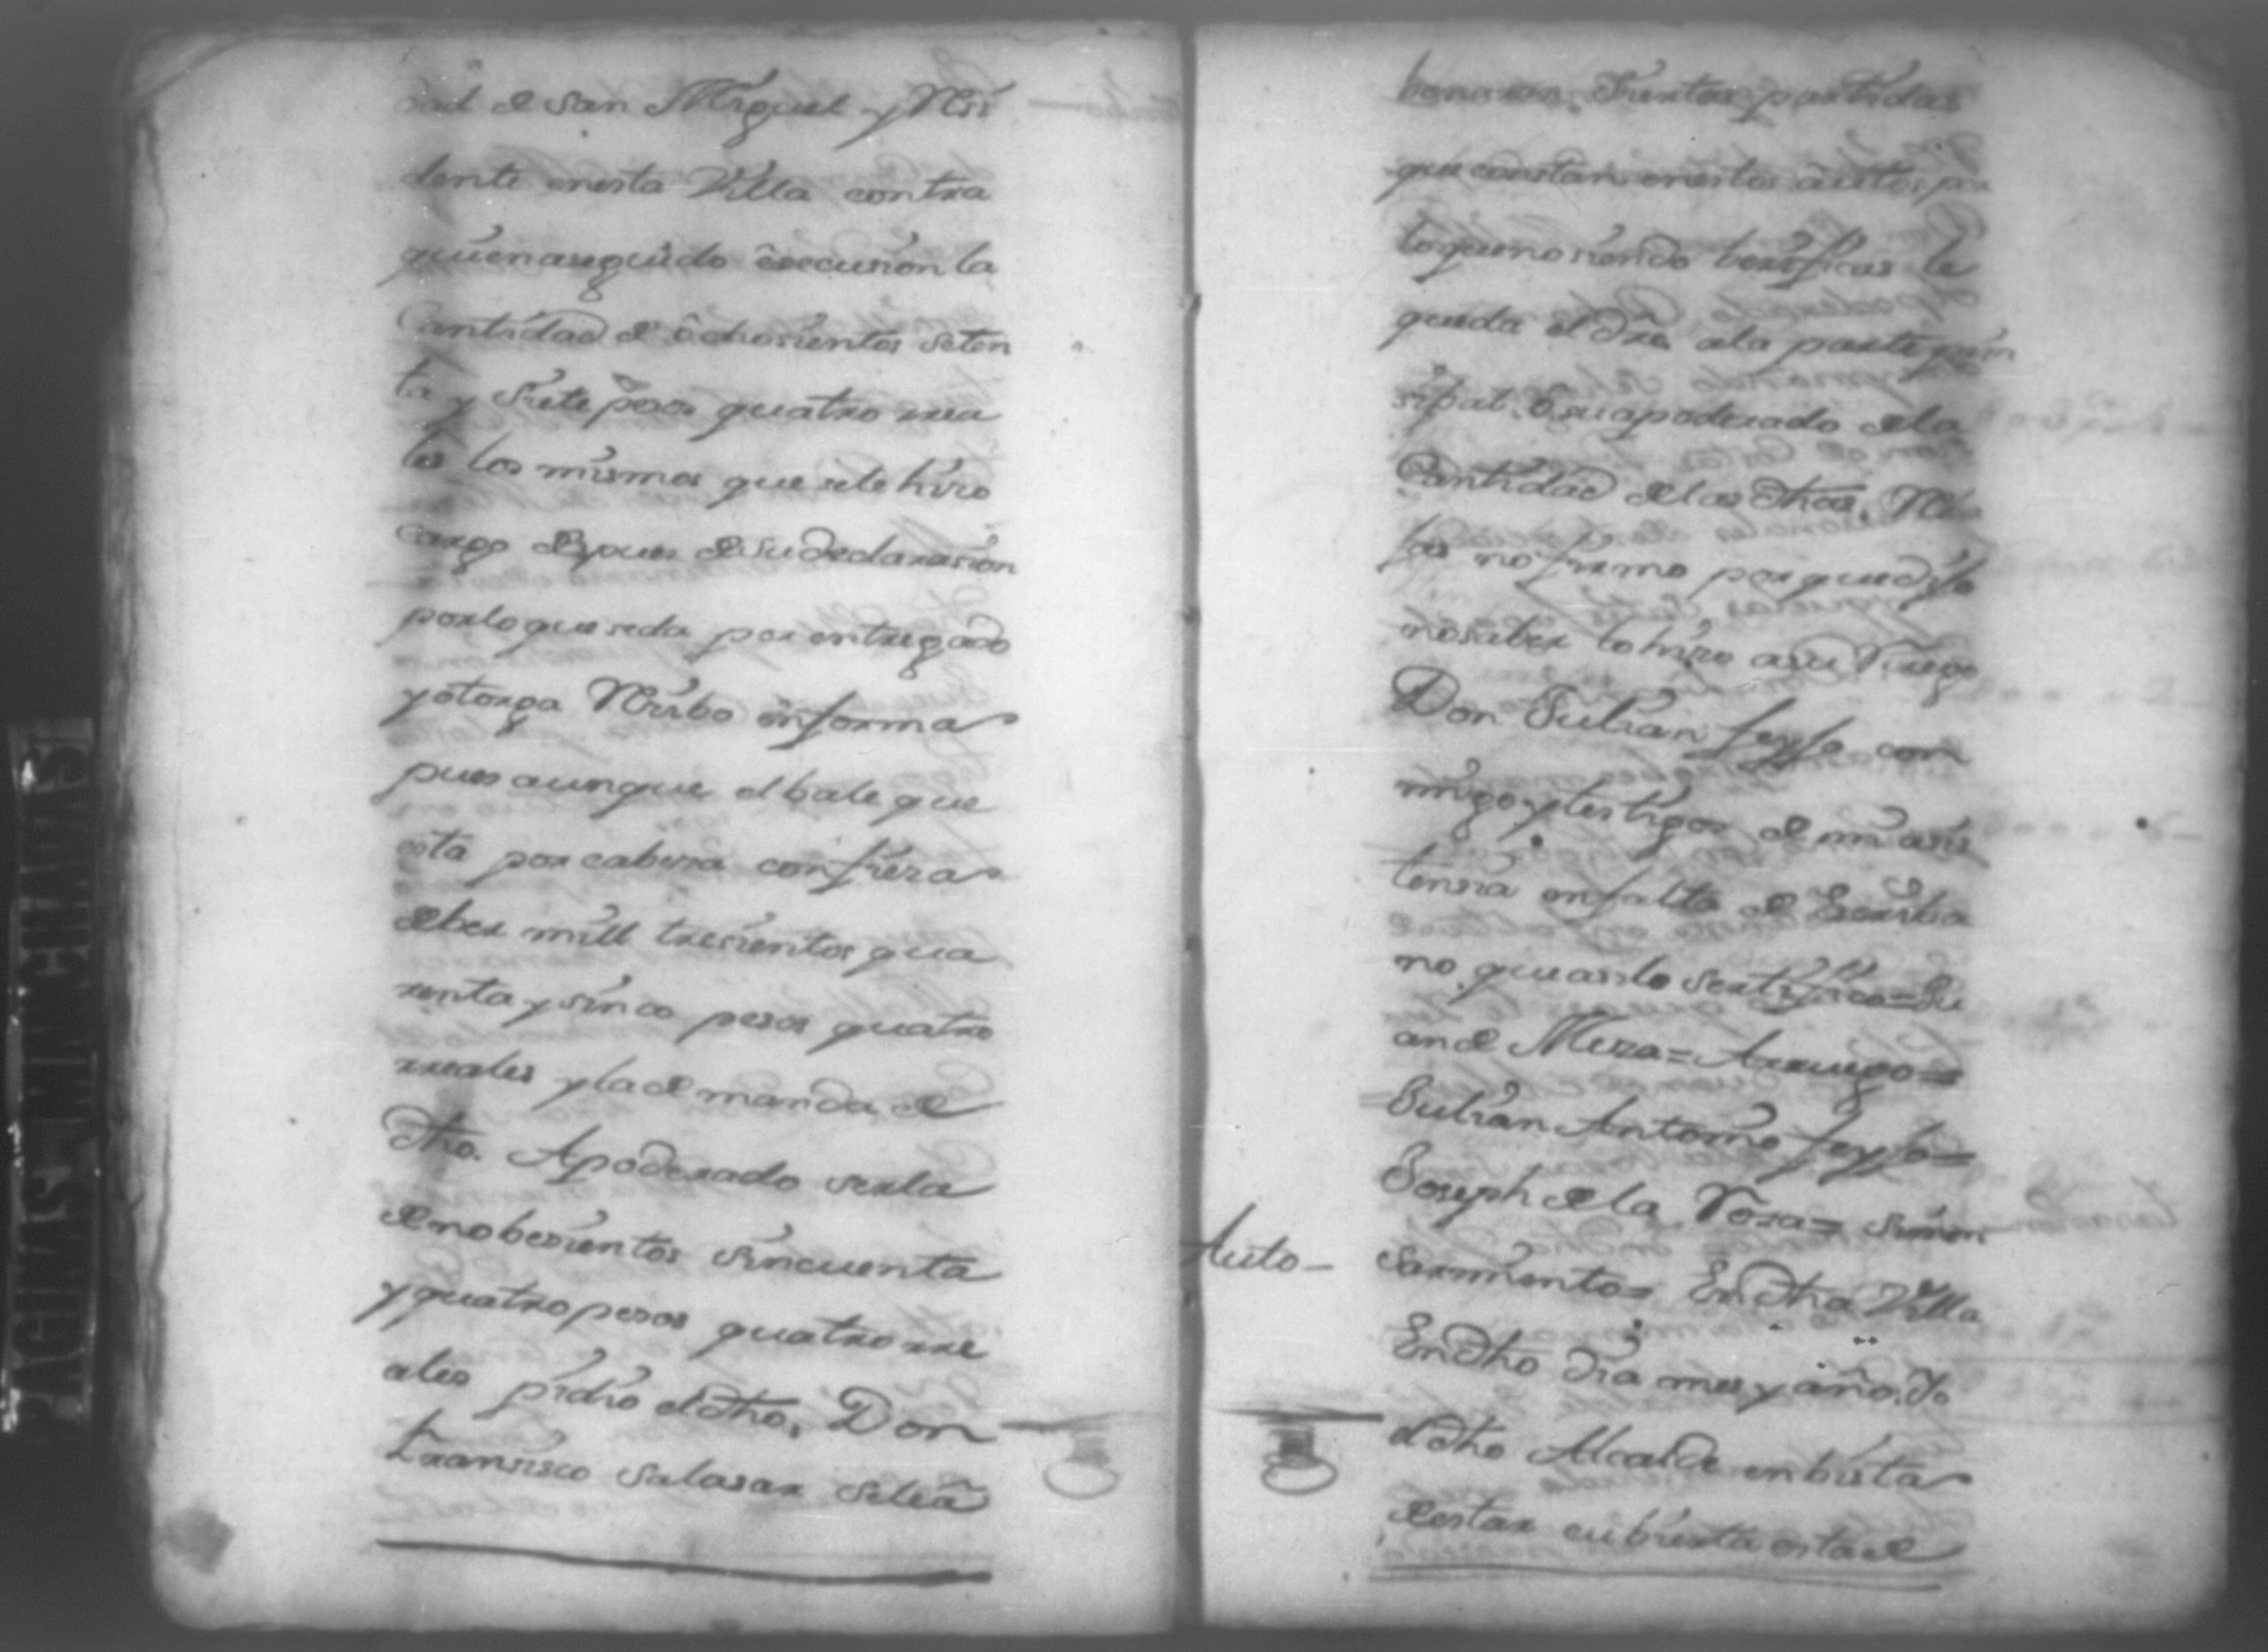 dad de San Miguel y Resi
dente enesta Villa contra
quienaseguido êxecusion la
Cantidad de ôchosientos Seten
ta y Siete pesos quatro rrea
les los mismos que sele hizo
cargo despues desudeclarasion
porloqueseda por entregado
yotorga Resibo enforma
pues aunque el bale que
esta por cabesa confiesa
deber mill tresientos qua
renta y sinco pesos quatro
rreales yla demanda de
dho. Apoderado serla
denobesientos Sincuenta
y quatro pesos quatro rre
ales pidio eldho, Don
Fransisco Salasar Selea
bonaran Siertas partidas
que constan enestos autos por
loquenosiendo
queda el dro ala parte prin
sipal ôsuapoderado dela
Cantidad delas dhas, Re
sas no firmo porquedijo
nosaber lo hizo asu Ruego
Don Julian feyjo con
migo y testigos de mi asis
tensia enfalta de Escriba
no, queasilo Sertifico=Ju
an de Meza= Arruego=
Julian Antonio feyjo=
Joseph dela Rosa= Simon
Sarmiento= Endha Villa
Auto-
Endho dia mes y año. Yo
eldho Alcalde enbista
destar cubierta esta de
PAGINAS MANCHADAS